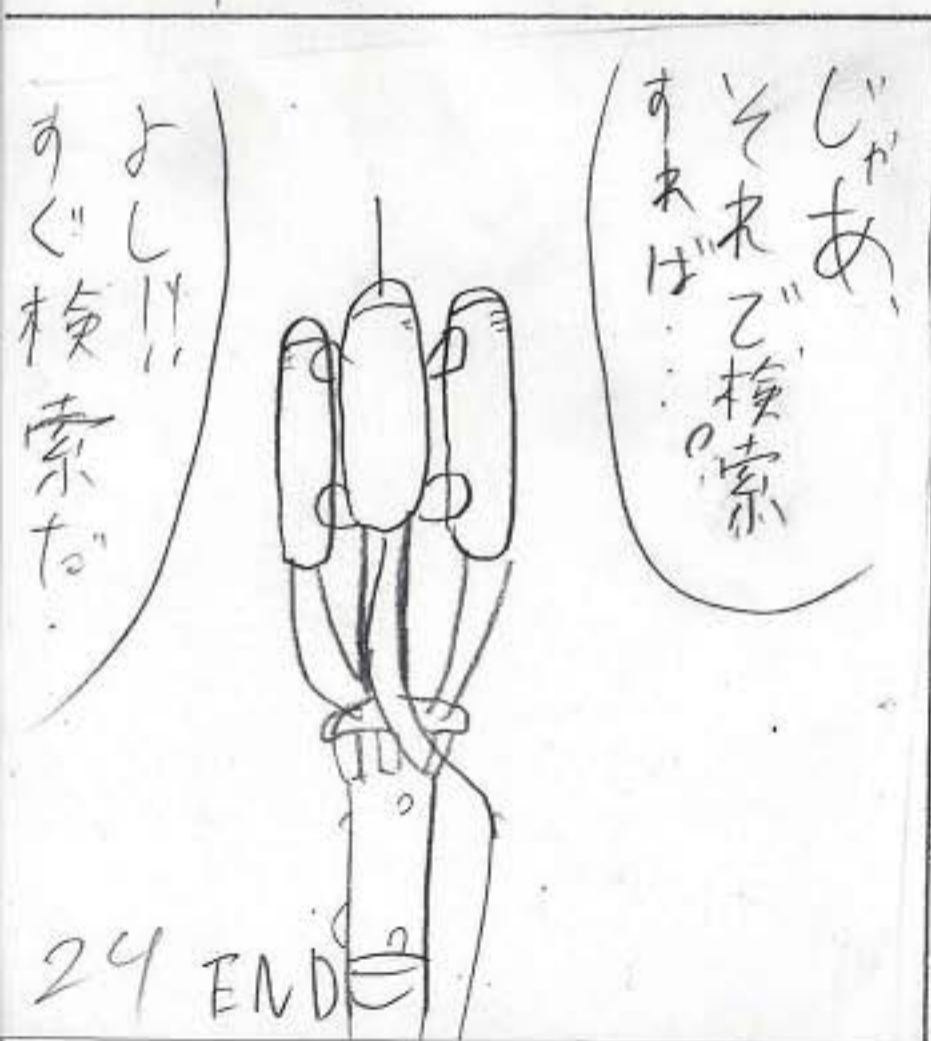 じゃあ、
それで検索
すれば…。
よし!!
すぐ検索だ.
24 END